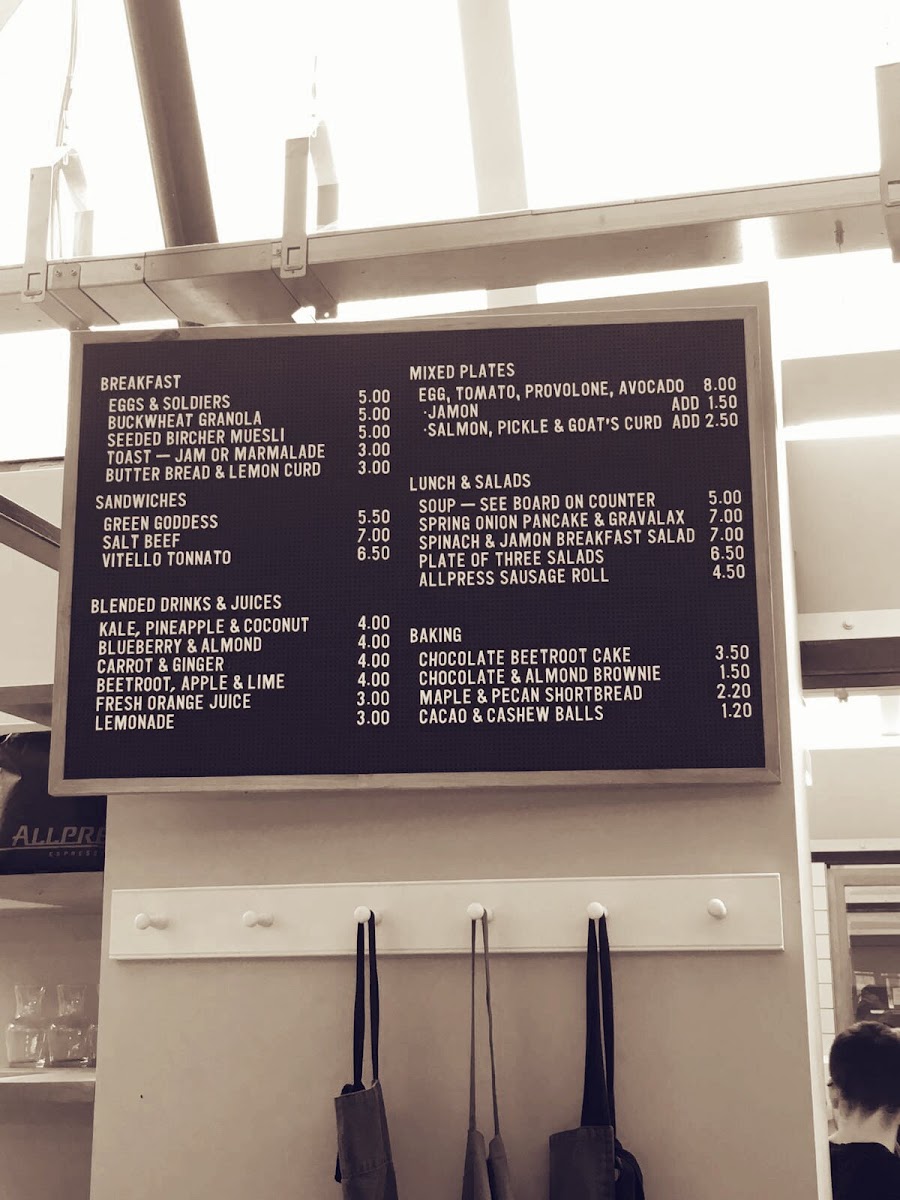 BREAKFAST
EGGS & SOLDIERS 5.00
BUCKWHEAT GRANOLA 5.00
SEEDED BIRCHER MUESLI 5.00
TOAST — JAM OR MARMALADE 3.00
BUTTER BREAD & LEMON CURD 3.00
SANDWICHES
GREEN GODDESS 5.50
SALT BEEF 7.00
VITELLO TONNATO 6.50
BLENDED DRINKS & JUICES
KALE, PINEAPPLE & COCONUT 4.00
BLUEBERRY & ALMOND 4.00
CARROT & GINGER 4.00
BEETROOT, APPLE & LIME 4.00
FRESH ORANGE JUICE 3.00
LEMONADE 3.00
MIXED PLATES
EGG, TOMATO, PROVOLONE, AVOCADO 8.00
·JAMON ADD 1.50
·SALMON, PICKLE & GOAT'S CURD ADD 2.50
LUNCH & SALADS
SOUP — SEE BOARD ON COUNTER 5.00
SPRING ONION PANCAKE & GRAVALAX 7.00
SPINACH & JAMON BREAKFAST SALAD 7.00
PLATE OF THREE SALADS 6.50
ALLPRESS SAUSAGE ROLL 4.50
BAKING
CHOCOLATE BEETROOT CAKE 3.50
CHOCOLATE & ALMOND BROWNIE 1.50
MAPLE & PECAN SHORTBREAD 2.20
CACAO & CASHEW BALLS 1.20
ALLPRE